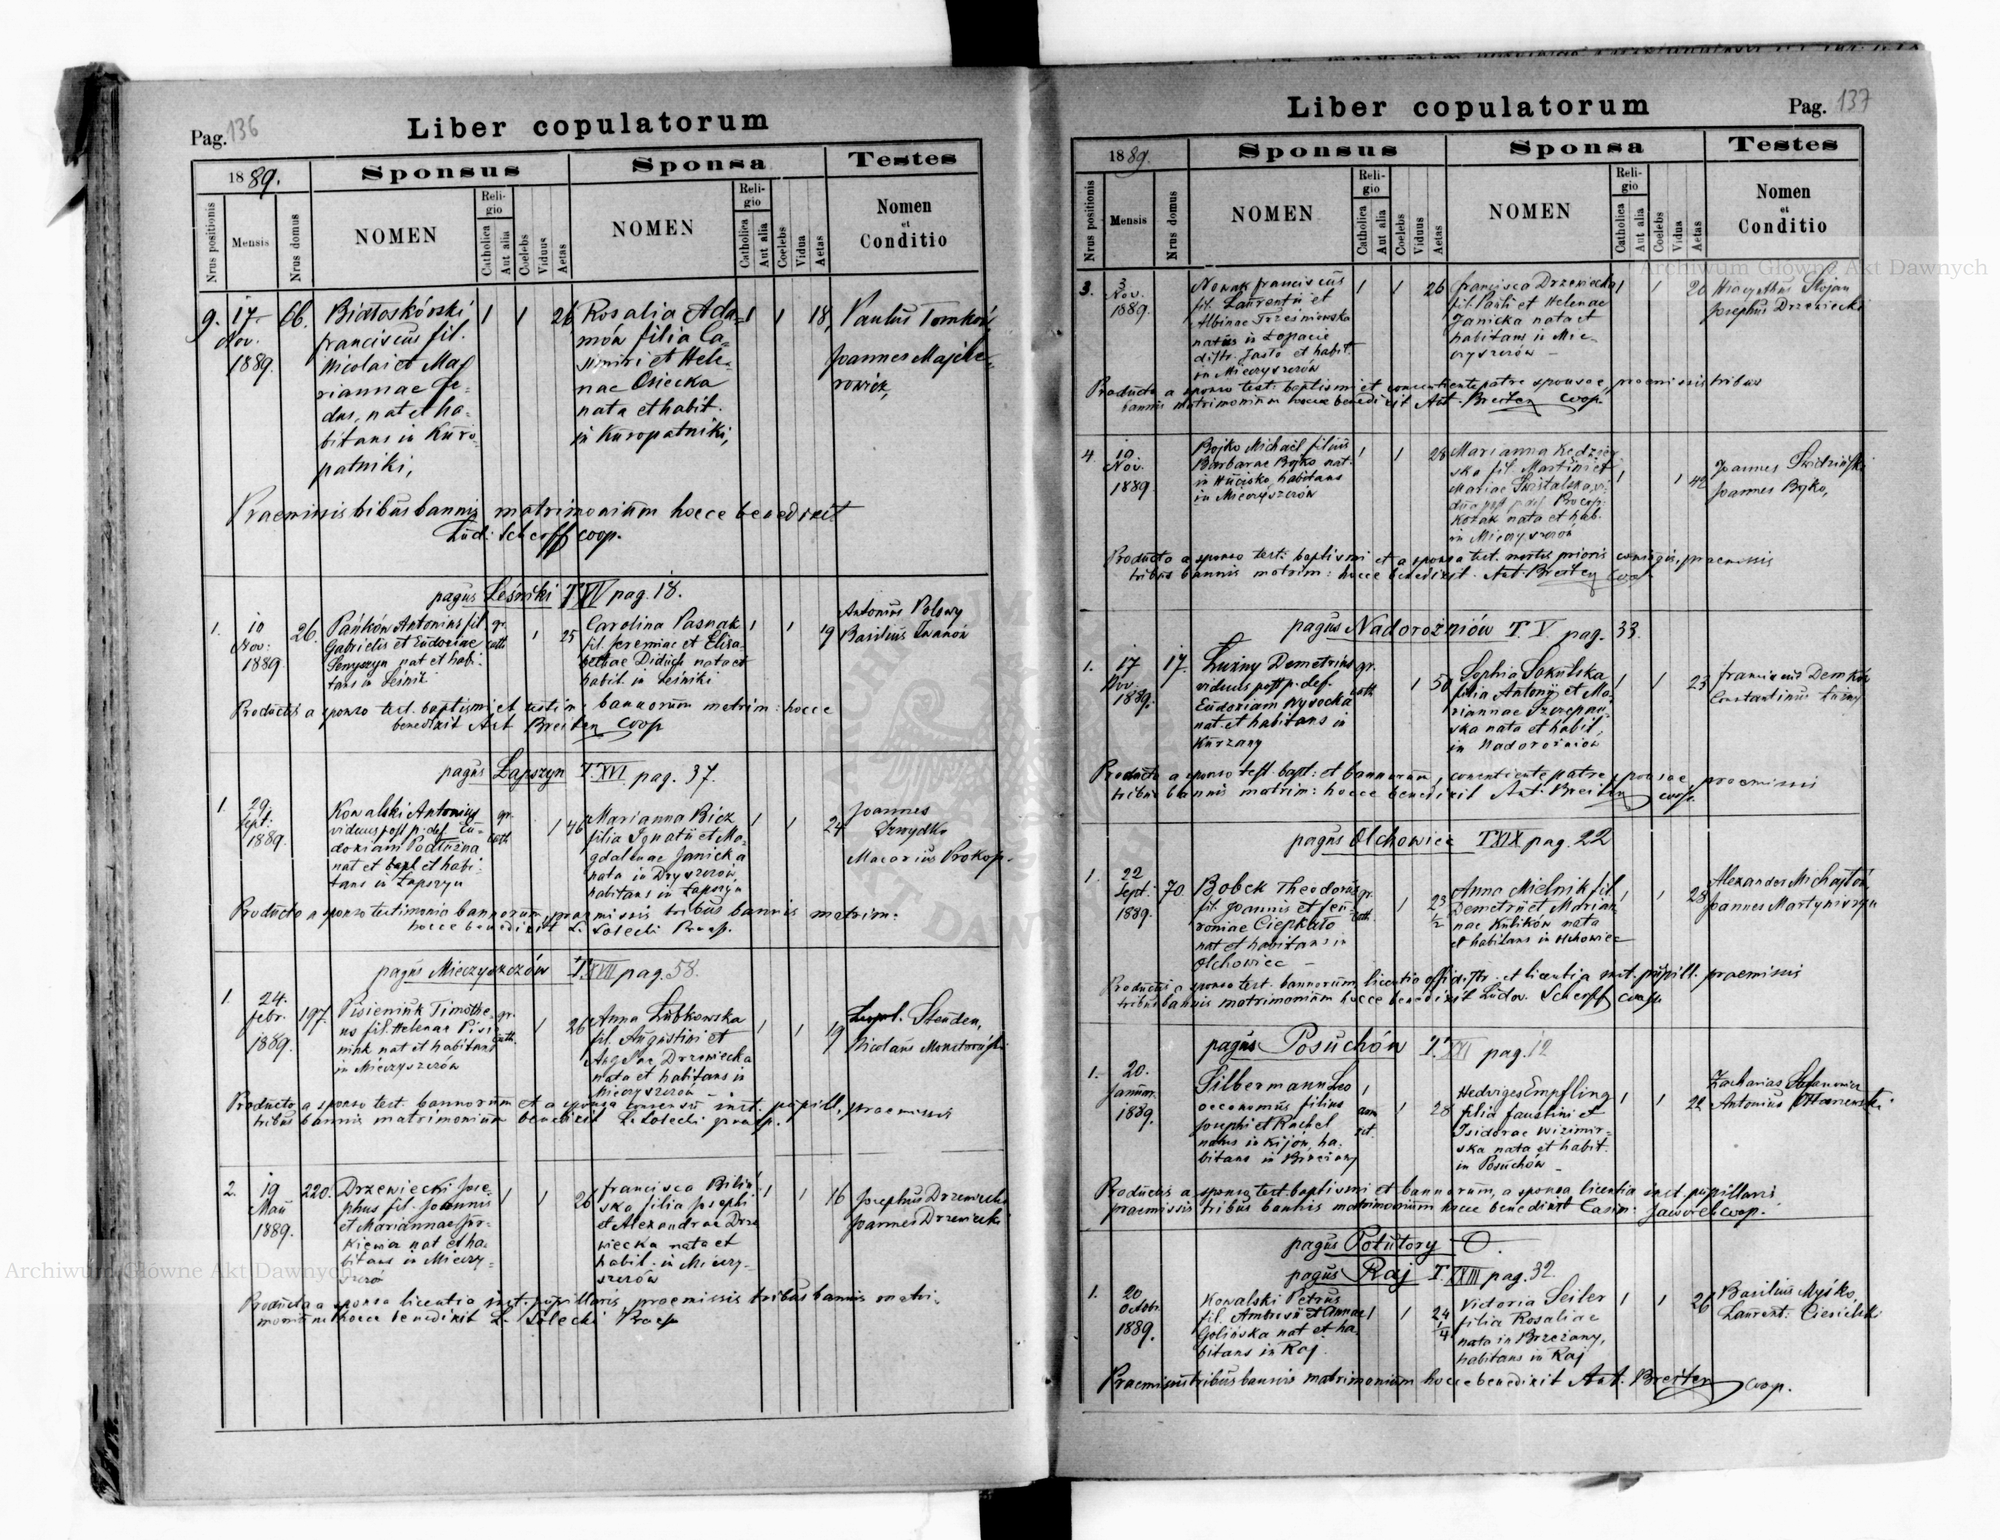 Pag. 136
Liber copulatorum
1889.
Sponsus
Sponsa
Testes
Nrus positionis
Mensis
Nrus domus
NOMEN
Religio
Catholica
Aut alia
Coelebs
Viduus
Aetas
NOMEN
Religio
Catholica
Aut alia
Coelebs
Vidua
Aetas
Nomen
et
Conditio
9. 17 Nov. 1889. 66.
Białoskórski
franciscus fil.
Nicolai et Ma-
riannae
nat et ha-
bitans in Kuro-
patniki,
1 1 26
Rosalia Ada-
mów filia Ca-
simiri et Hele-
nae Osiecka
nata et habit.
in Kuropatniki,
1 1 18,
Paulus
Joannes Majche-
rowicz,
Praemissis tribus bannis matrimonium hocce benedixit
Lud. Scherff coop.
pagus Leśniki T XV pag. 18.
1. 10 Nov. 1889. 26.
Pańków Antonius fil
Gabrielis et Eudociae
Senyszyn nat et habi-
tans in Leśniki
gr. cath 1 25
Carolina Pasnak
fil. Jeremiae et Elisa-
bethae Diduch nata et
habit. in Leśniki
1 1 19
Antonius Polowy
Basilius Iwanów
Productis a sponso test. baptismi et testim: bannorum matrim: hocce
benedixit Ant Breiten Coop
pagus Łapszyn T. XVI pag. 37.
1. 29 Sept. 1889.
Kowalski Antonius
viduus post p. def Eu-
dokiam Podluzna
nat et bapt et habi-
tans in Łapszyn
gr. cath 1 46
Marianna Bicz
filia Ignatii et Ma-
gdalenae Janicka
nata in Dryszczów
habitans in Łapszyn
1 1 24
Joannes
Macarius Prokop
Producto a sponso testimonio bannorum, praemissis tribus bannis matrim:
hocce benedixit L. Solecki Praep.
pagus Mieczyszczów T XVII pag. 58.
1. 24. febr. 1889. 197.
Pisieniuk Timothe-
us fil. Helenae Pisie-
niuk nat et habitans
in Mieczyszczów
gr. cath. 1 26
Anna Lubkowska
fil. Augustini et
Agnae Drzewiecka
nata et habitans in
Mieczyszczów
1 1 19
Leopol. Steuden,
Nicolaus
Producto a sponso test. bannorum et a sponsa consensu inst. pupill, praemissis
tribus bannis matrimonium benedixit L. Solecki praep.
2. 19 Maii 1889. 220.
Drzewiecki Jose-
phus fil. Joannis
et Mariannae
nat et ha-
bitans in Mieczy-
szczów
1 1 26
francisca Bilin-
ska filia Josephi
et Alexandrae Drze
wiecka nata et
habit. in Mieczy-
szczów
1 1 16
Josephus Drzewiecki
Joannes Drzewiecki
Producta a sponsa licentia inst. pupillaris praemissis tribus bannis matri-
monium hocce benedixit L. Solecki Praep
Liber copulatorum
Pag. 137
1889.
Sponsus
Sponsa
Testes
Nrus positionis
Mensis
Nrus domus
NOMEN
Religio
Catholica
Aut alia
Coelebs
Viduus
Aetas
NOMEN
Religio
Catholica
Aut alia
Coelebs
Vidua
Aetas
Nomen
et
Conditio
3. 3 Nov. 1889.
Nowak franciscus
fil. Laurentii et
Albinae Trześniowska
natus in Łopacie
distr. Jasło et habit.
in Mieczyszczów
1 1 26
francisca Drzewiecka
fil. Pauli et Helenae
Janicka nata et
habitans in Mie-
czyszczów
1 1 20
Hiacynthus Stojan
Josephus Drzewiecki
Producto a sponso test: baptismi et consentiente patre sponsae, praemissis tribus
bannis matrimonium hocce benedixit Ant. Breiten Coop.
4. 10 Nov. 1889.
Bojko Michaël filius
Barbarae Bojko nat.
in Hucisko, habitans
in Mieczyszczów
1 1 28
Marianna Kedzier
ska fil. Martini et
Mariae vi-
dua post p. def. Procop
Kozak nata et hab.
in Mieczyszczów
1 1 42
Joannes
Joannes Bojko,
Producto a sponso test: baptismi et a sponsa test. mortis prioris conjugis, praemissis
tribus bannis matrim: hocce benedixit. Ant. Breiten Coop
pagus Nadorożniów T. V. pag. 33.
1. 17 Nov. 1889. 17.
Łużny Demetrius
viduus post p. def.
Eudoxiam Wysocka
nat. et habitans in
Kurzany
gr. cath 1 50
Sophia Sokulska
filia Antonii et Ma-
riannae Szczepań-
ska nata et habit.
in Nadorożniów
1 1 23
franciscus Demków
Constantinus Łużny
Producto a sponso test. bapt: et bannorum, consentiente patre sponsae praemissis
tribus bannis matrim: hocce benedixit Ant. Breiten coop.
pagus Olchowiec T XIX pag. 22
1. 22 Sept. 1889. 70.
Bobek Theodorus
fil. Joannis et feu-
roniae Ciepkało
nat et habitans in
Olchowiec
gr. cath. 1 23 1/2
Anna Mielnik fil
Demetrii et Marian-
nae Kulików nata
et habitans in Olchowiec
1 1 28
Alexander Michajłów,
Joannes Martyniszyn
Productis a sponso test. bannorum, licentia off. distr. et licentia inst. pupill. praemissis
tribus bannis matrimonium hocce benedixit Ludov. Scherff Coop.
pagus Posuchów T. XXI pag. 12
1. 20. Januar. 1889.
Silbermann Leo
oeconomus filius
Josephi et Rachel
natus in Kijów, ha-
bitans in Brzeżany
1 1 28
Hedviges Empfling
filia faustini et
Isidorae
ska nata et habit.
in Posuchów
1 1 22
Zacharias
Antonius
Productis a sponso test. baptismi et bannorum, a sponsa licentia inst. pupillaris
praemissis tribus bannis matrimonium hocce benedixit Casim: Jaworek coop.
pagus Potutory — O.
pagus Raj T. XXIII pag. 32.
1. 20 Octobr. 1889.
Kowalski Petrus
fil. Ambrosii et Annae
Golińska nat et ha-
bitans in Raj
1 1 24 1/4
Victoria Seiler
filia Rosaliae
nata in Brzeżany,
habitans in Raj
1 1 26
Basilius Myśko,
Laurent. Ciesielski
Praemissis tribus bannis matrimonium hocce benedixit Ant. Breiten coop.
Archiwum Główne Akt Dawnych
Archiwum Główne Akt Dawnych